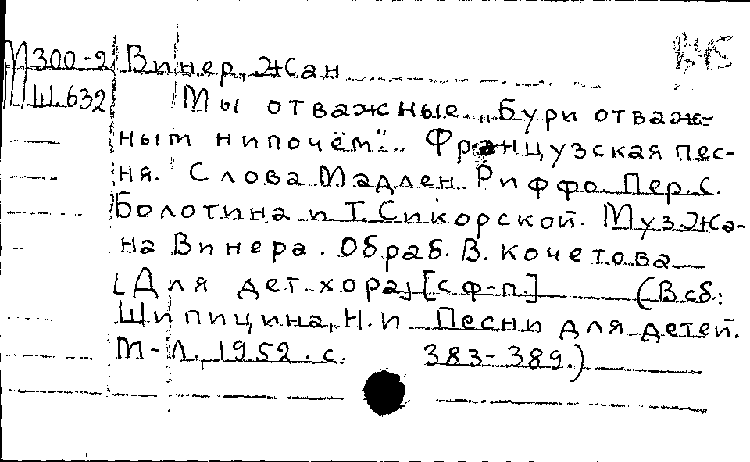 М 300-2 Винер, Жан В45
Ш.632 Мы отважные. „Бури отваж-
ным нипочём“.. Французская пес-
ня. Слова Мадлен Риффо Пер. С.
Болотина и Т. Сикорской. Муз. Жа-
на Винера. Обраб. В. Кочетова
[Для дет. хора] [с ф-п.] (В сб.:
Шипицина, Н. И Песни для детей.
М-Л., 1952. с. 383-389.)